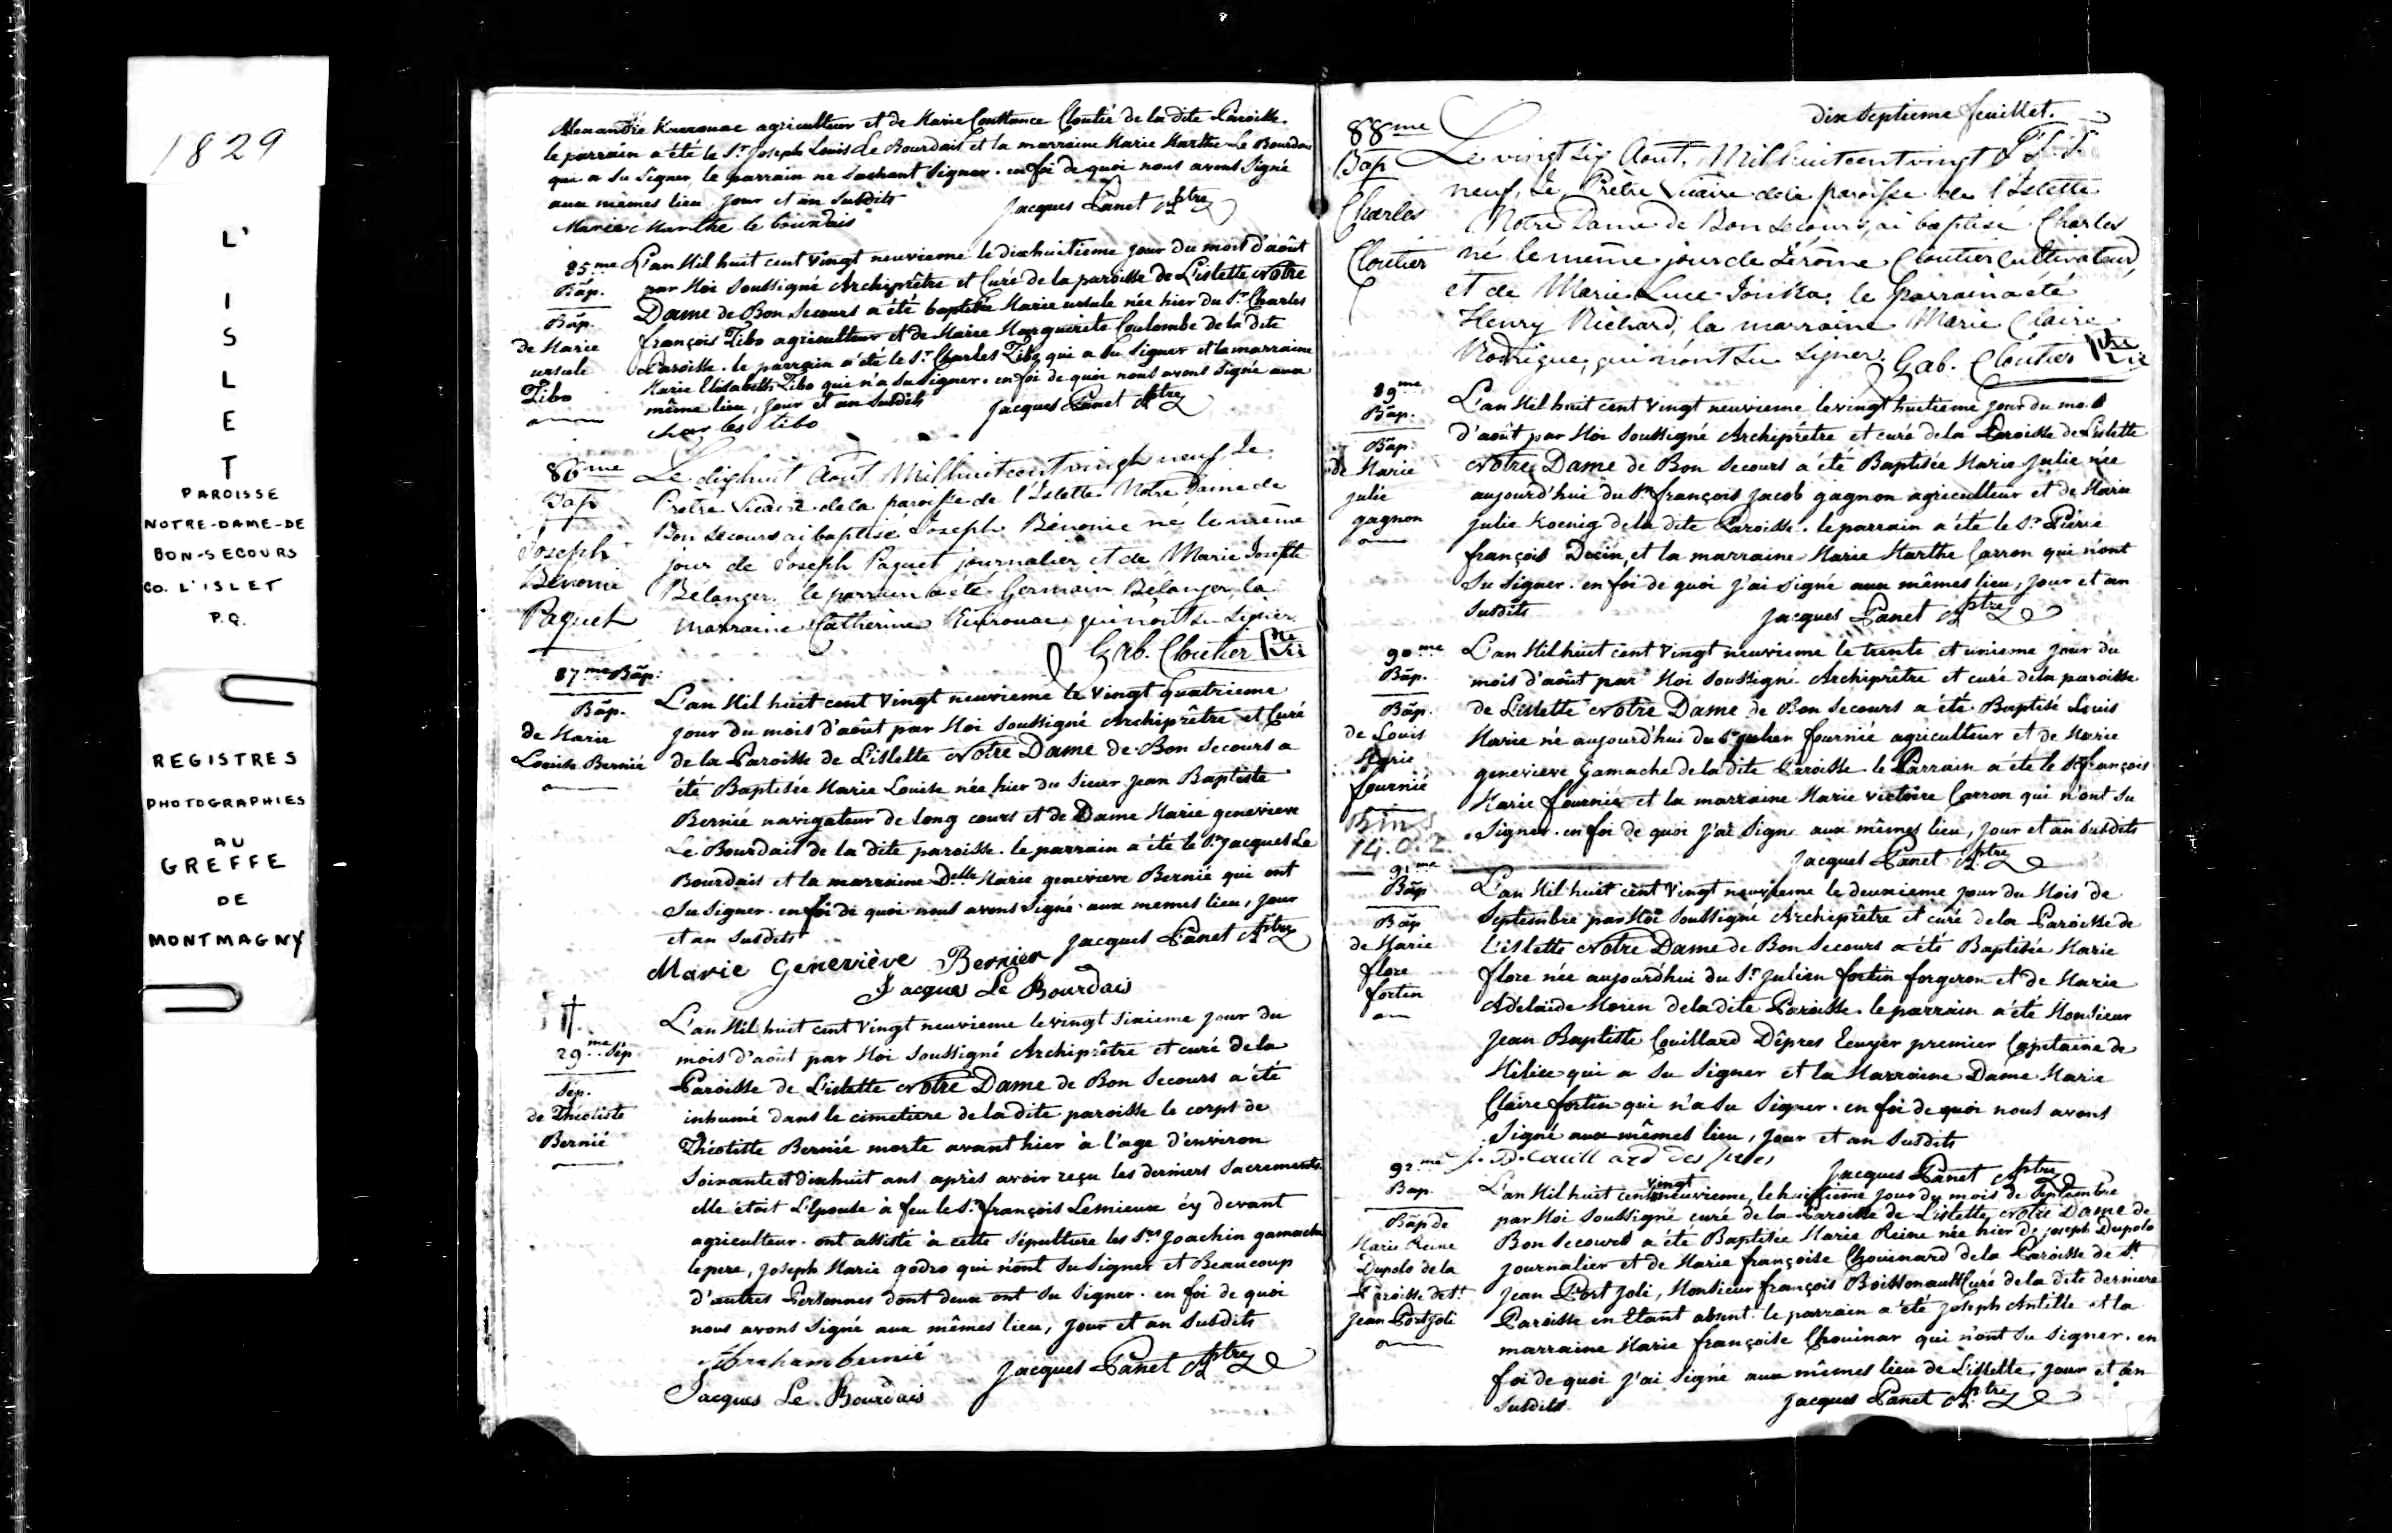 1829
L'
I
S
L
E
T
PAROISSE
NOTRE-DAME-DE
BON-SECOURS
CO. L'ISLET
P.Q.
REGISTRES
PHOTOGRAPHIES
AU
GREFFE
DE
MONTMAGNY
Alexandre Kuerouac agriculteur et de Marie Constance Cloutié de la dite Paroisse.
le parrain a été le Sr Joseph Louis Le Bourdais et la marraine Marie Marthe Le Bourdais
qui a su signer, le parrain ne sachant signer. en foi de quoi nous avons signé
aux mêmes lieu jour et an susdits
Jacques Panet Aptre
Marie Marthe le bourdais
85me
Bap.
Bap.
de Marie
ursule
Tibo
L'an Mil huit cent vingt neuvieme le dixhuitieme jour du mois d'août
par Moi soussigné Archiprêtre et Curé de la paroisse de L'islette Notre
Dame de Bon Secours a été baptisée Marie ursule née hier du Sr Charles
françois Tibo agriculteur et de Marie Marguerite Coulombe de la dite
Paroisse. le parrain a été le Sr Charles Tibo, qui a su signer et la marraine
Marie Elisabeth Tibo qui n'a su signer. en foi de quoi nous avons signé aux
même lieu, jour et an susdits
Jacques Panet Aptre
charles tibo
86me
Bap
Joseph
Bénonie
Paquet
Le dixhuit Août Mil huit cent vingt neuf Je
Prêtre Vicaire de la paroisse de l'Islette Notre Dame de
Bon Secours ai baptisé Joseph Bénonie né le même
jour de Joseph Paquet journalier et de Marie Josephte
Bélanger. le parrain a été Germain Bélanger la
marraine Catherine Keirouac, qui n'ont su signer.
Gab. Cloutier Ptre
87me Bap:
Bap.
de Marie
Louise Bernié
L'an Mil huit cent vingt neuvieme le vingt quatrieme
jour du mois d'août par Moi soussigné Archiprêtre et Curé
de la Paroisse de L'islette Notre Dame de Bon Secours a
été Baptisée Marie Louise née hier du Sieur Jean Baptiste
Bernie navigateur de long cours et de Dame Marie genevieve
Le Bourdais de la dite paroisse. le parrain a été le Sr Jacques Le
Bourdais et la marraine Delle Marie genevieve Bernié qui ont
su signer. en foi de quoi nous avons signé aux memes lieu, jour
et an susdits
Jacques Panet Aptre
Marie Geneviève Bernier
Jacques Le Bourdais
29me Sép
Sép.
de Théotiste
Bernié
L'an Mil huit cent vingt neuvieme le vingt sixieme jour du
mois d'août par Moi soussigné Archiprêtre et curé de la
Paroisse de L'islette Notre Dame de Bon Secours a été
inhumé dans le cimetiere de la dite paroisse le corps de
Théotiste Bernié morte avant hier à l'age d'environ
soixante et dixhuit ans après avoir reçu les derniers sacrements.
elle étoit L'Epouse à feu le Sr françois Lemieux cy devant
agriculteur. ont assisté à cette sépulture les Srs Joachin gamache
le pere, Joseph Marie godro qui n'ont su signer et Beaucoup
d'autres Personnes dont deux ont su signer. en foi de quoi
nous avons signé aux mêmes lieu, jour et an susdits
Abraham bernié
Jacques Panet Aptre
Jacques Le Bourdais
Dix Septieme feuillet.
88me
Bap
Charles
Cloutier
Le vingt six Août, Mil huit cent vingt
neuf, Je Prêtre Vicaire de la paroisse de l'Islette
Notre Dame de Bon Secours, ai baptisé Charles
né le même jour de Jérôme Cloutier Cultivateur
et de Marie Luce Jonkas, le parrain a été
Henry Richard, la marraine Marie Claire
Rodrigue, qui n'ont su signer. Gab. Cloutier Ptre
89me
Bap.
Bap.
de Marie
julie
gagnon
L'an Mil huit cent vingt neuvieme le vingt huitieme jour du mois
d'août par Moi soussigné Archiprêtre et curé de la Paroisse de L'islette
Notre Dame de Bon Secours a été Baptisée Marie Julie née
aujourd'hui du Sr françois Jacob gagnon agriculteur et de Marie
Julie Koenig de la dite Paroisse. le parrain a été le Sr Pierre
françois Dessin, et la marraine Marie Marthe Carron qui n'ont
su signer. en foi de quoi j'ai signé aux mêmes lieu, jour et an
susdits
Jacques Panet Aptre
90me
Bap.
Bap.
de Louis
Marie
fournié
L'an Mil huit cent vingt neuvieme le trente et unieme jour du
mois d'août par Moi soussigné Archiprêtre et curé de la paroisse
de L'islette Notre Dame de Bon Secours a été Baptisé Louis
Marie né aujourd'hui du Sr Julien fournié agriculteur et de Marie
genevieve Gamache de la dite Paroisse. le Parrain a été le Sr françois
Marie fournier et la marraine Marie victoire Carron qui n'ont su
signer. en foi de quoi j'ai signé aux mêmes lieu, jour et an susdits
Jacques Panet Aptre
91me
Bap
Bap
de Marie
flore
fortin
L'an Mil huit cent vingt neuvieme le deuxieme jour du Mois de
septembre par Moi soussigné Archiprêtre et curé de la Paroisse de
L'islette Notre Dame de Bon Secours a été Baptisée Marie
flore née aujourd'hui du Sr Julien fortin forgeron et de Marie
Adelaide Morin de la dite Paroisse. le parrain a été Monsieur
Jean Baptiste Couillard Dêpres Ecuyer premier Capitaine de
Milice qui a su signer et la Marraine Dame Marie
Claire fortin qui n'a su signer. en foi de quoi nous avons
signé aux mêmes lieu, jour et an susdits
J. B. Couillard des pres
Jacques Panet Aptre
92me
Bap.
Bap de
Marie Reine
Dupolo de la
Paroisse de St
Jean Port joli
L'an Mil huit cent vingt neuvieme, le huitieme jour du mois de septembre
par Moi soussigné curé de la Paroisse de L'islette Notre Dame de
Bon Secours a été Baptisée Marie Reine née hier de joseph Dupolo
journalier et de Marie françoise Chouinard de la Paroisse de St
Jean Port Joli, Monsieur françois Boissonault Curé de la dite derniere
Paroisse en Etant absent. le parrain a été Joseph Antille et la
marraine Marie françoise Chouinar qui n'ont su signer. en
foi de quoi j'ai signé aux mêmes lieu de L'islette, jour et an
susdits.
Jacques Panet Aptre